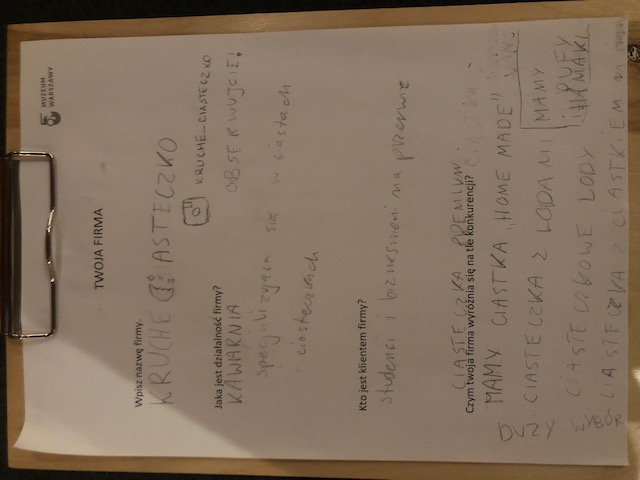 MUZEUM
WARSZAWY
TWOJA FIRMA
Wpisz nazwę firmy.
KRUCHE CIASTECZKO
KRUCHE_CIASTECZKO
OBSERWUJCIE!
Jaka jest działalność firmy?
KAWARNIA
specjalizująca się w ciastach
i ciasteczkach
Kto jest klientem firmy?
studenci i biznesmeni na przerwie
CIASTECZKA PREMIUM
Czym twoja firma wyróżnia się na tle konkurencji?
MAMY CIASTKA "HOME MADE"
CIASTECZKA Z LODAMI
MAMY
PUFY
I HAMAKI
CIASTECZKOWE LODY
DUŻY
WYBÓR
CIASTECZKA Z CIASTKIEM